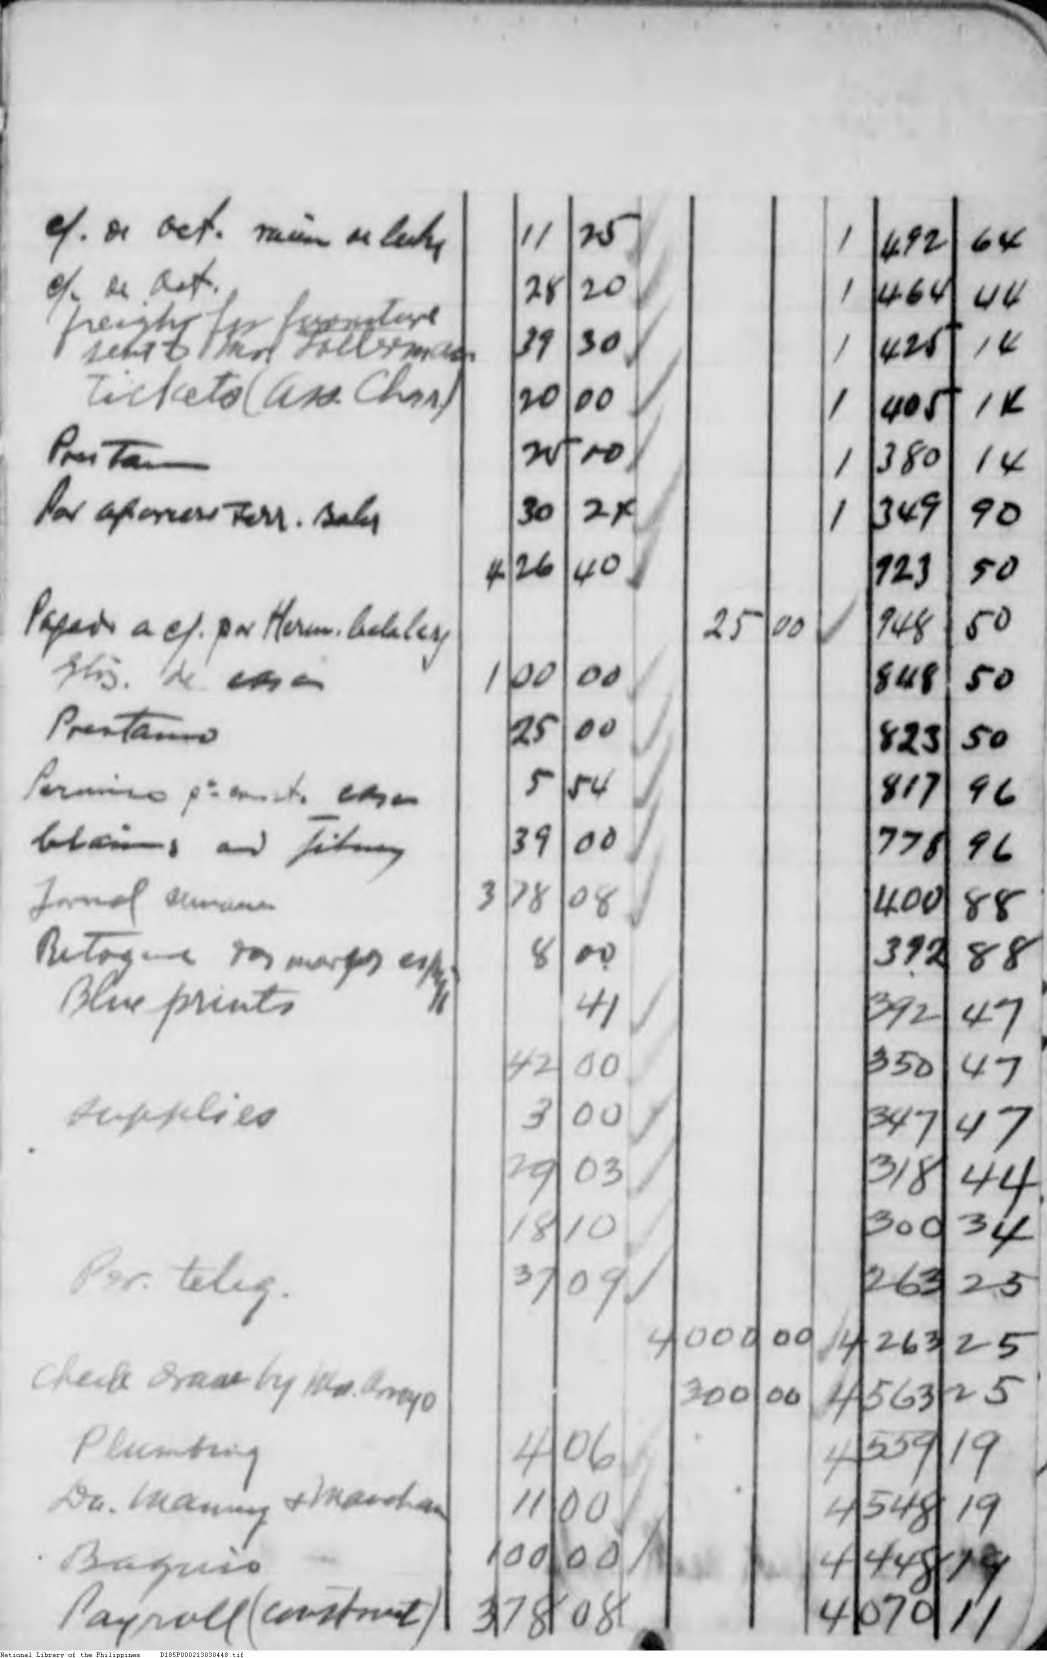 c/. de Oct. 11 25 1 492 64
c/. de Oct. 28 20 1 464 44
freight for furniture
sent to Mrs. 39 30 1 425 14
tickets (Ass. Char) 20 00 1 405 14
25 00 1 380 14
Por 30 24 1 349 90
4 26 40 923 50
Pagado a c/. por Herm. 25 00 948 50
de casa 1 00 00 848 50
Prestamo 25 00 823 50
Permiso casa 5 54 817 96
and 39 00 778 96
Jornal semana 3 78 08 400 88
Retoque dos 8 00 392 88
Blue prints 41 392 47
42 00 350 47
supplies 3 00 347 47
29 03 318 44
18 10 300 34
Per. teleg. 37 09 263 25
4 000 00 4 263 25
Check drawn by Mr. Arroyo 300 00 4 563 25
Plumbing 4 06 4 559 19
Da. 11 00 4 548 19
Baguio 100 00 4 448 19
Payroll (construct) 378 08 4 070 11
National Library of the Philippines